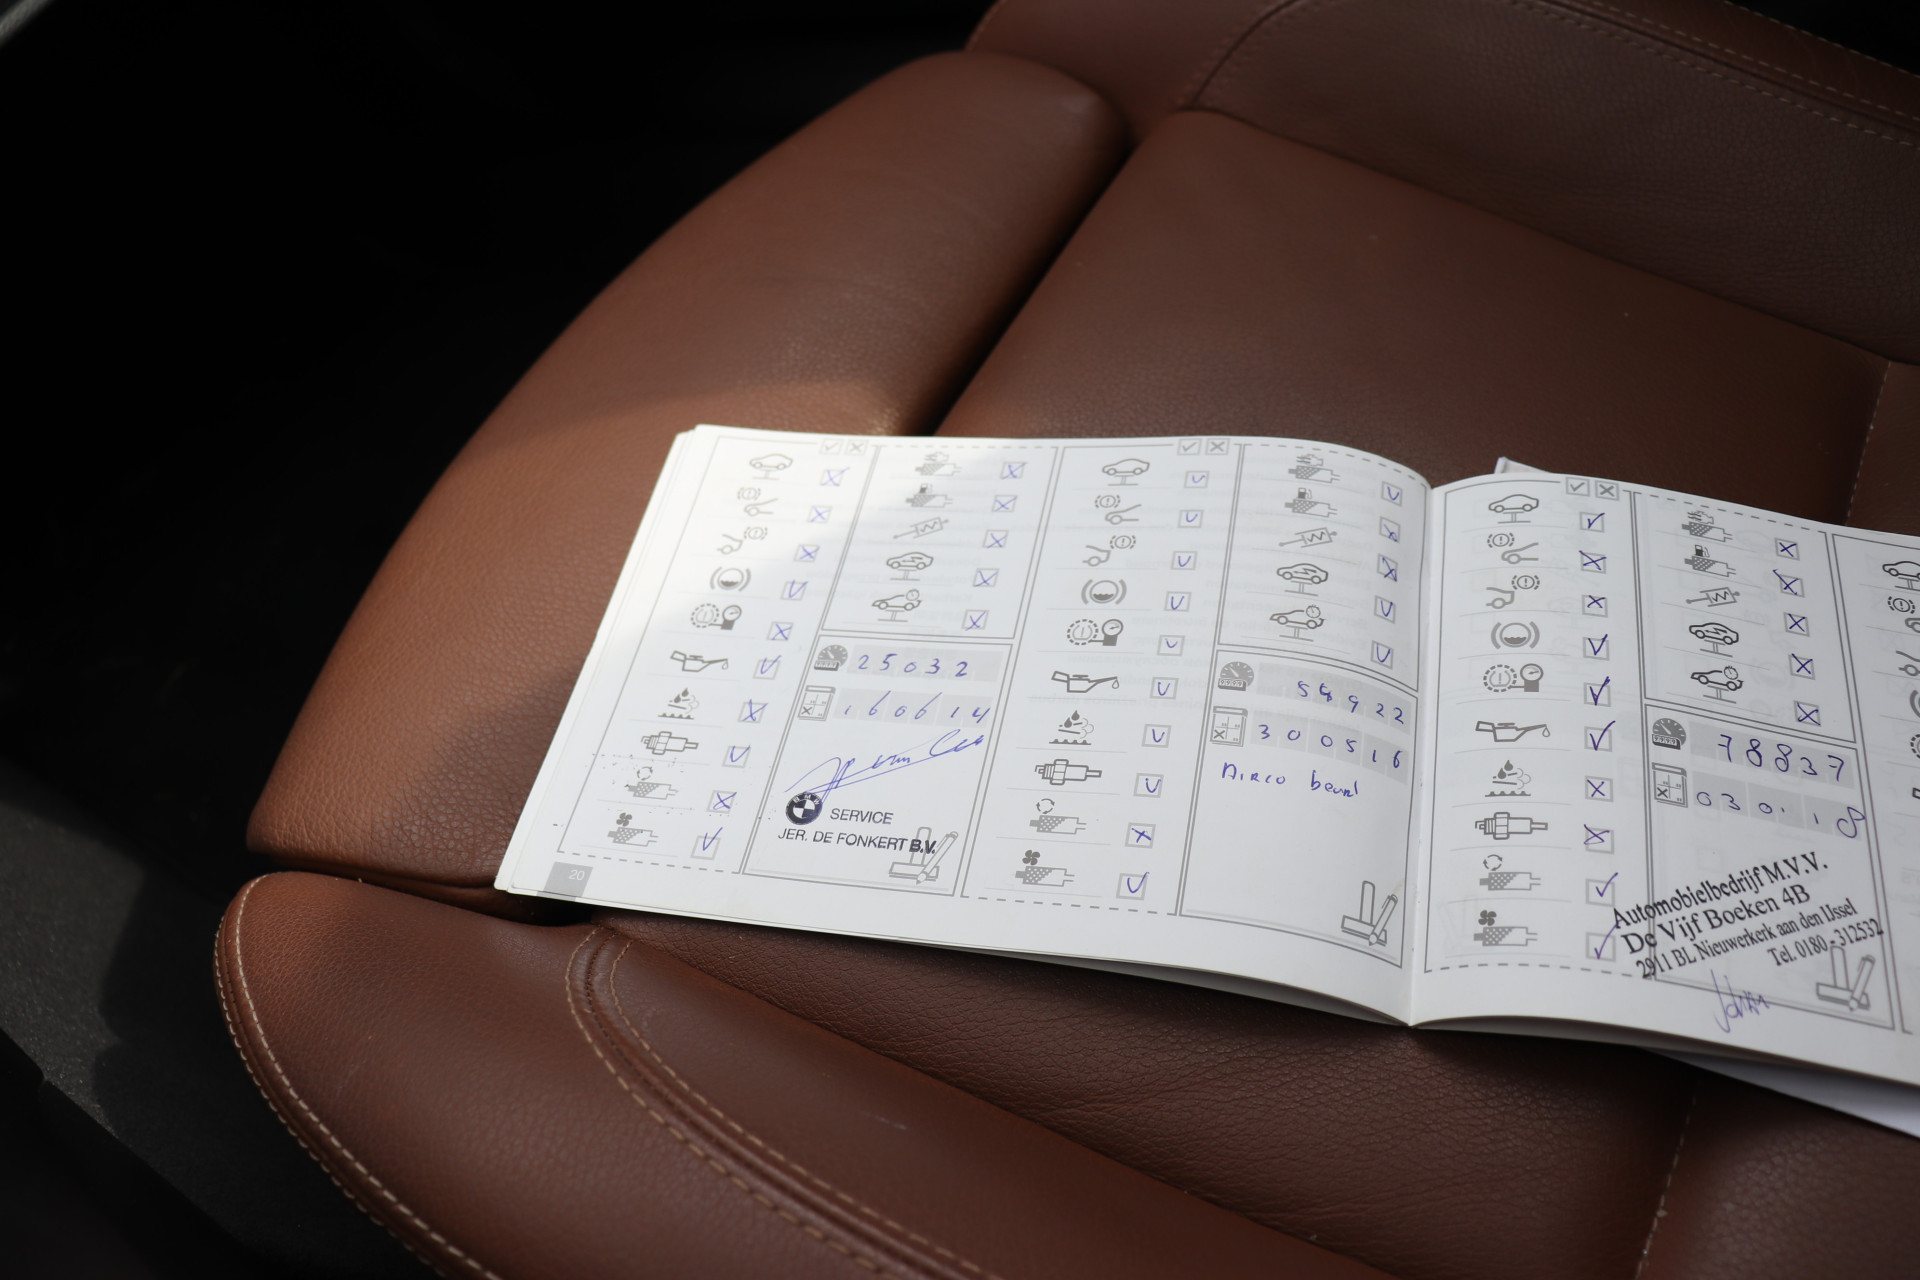 25032
160614
BMW
SERVICE
JER. DE FONKERT B.V.
20
30 05 16
Airco
78837
Automobielbedrijf M.V.V.
De Vijf Boeken 4B
2911 BL Nieuwerkerk aan den IJssel
Tel. 0180 - 312532